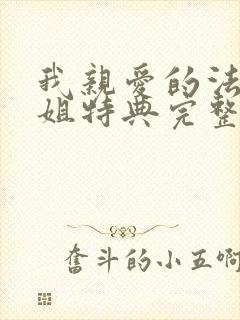 我亲爱的法
姐特典完整
奋斗的小五啊